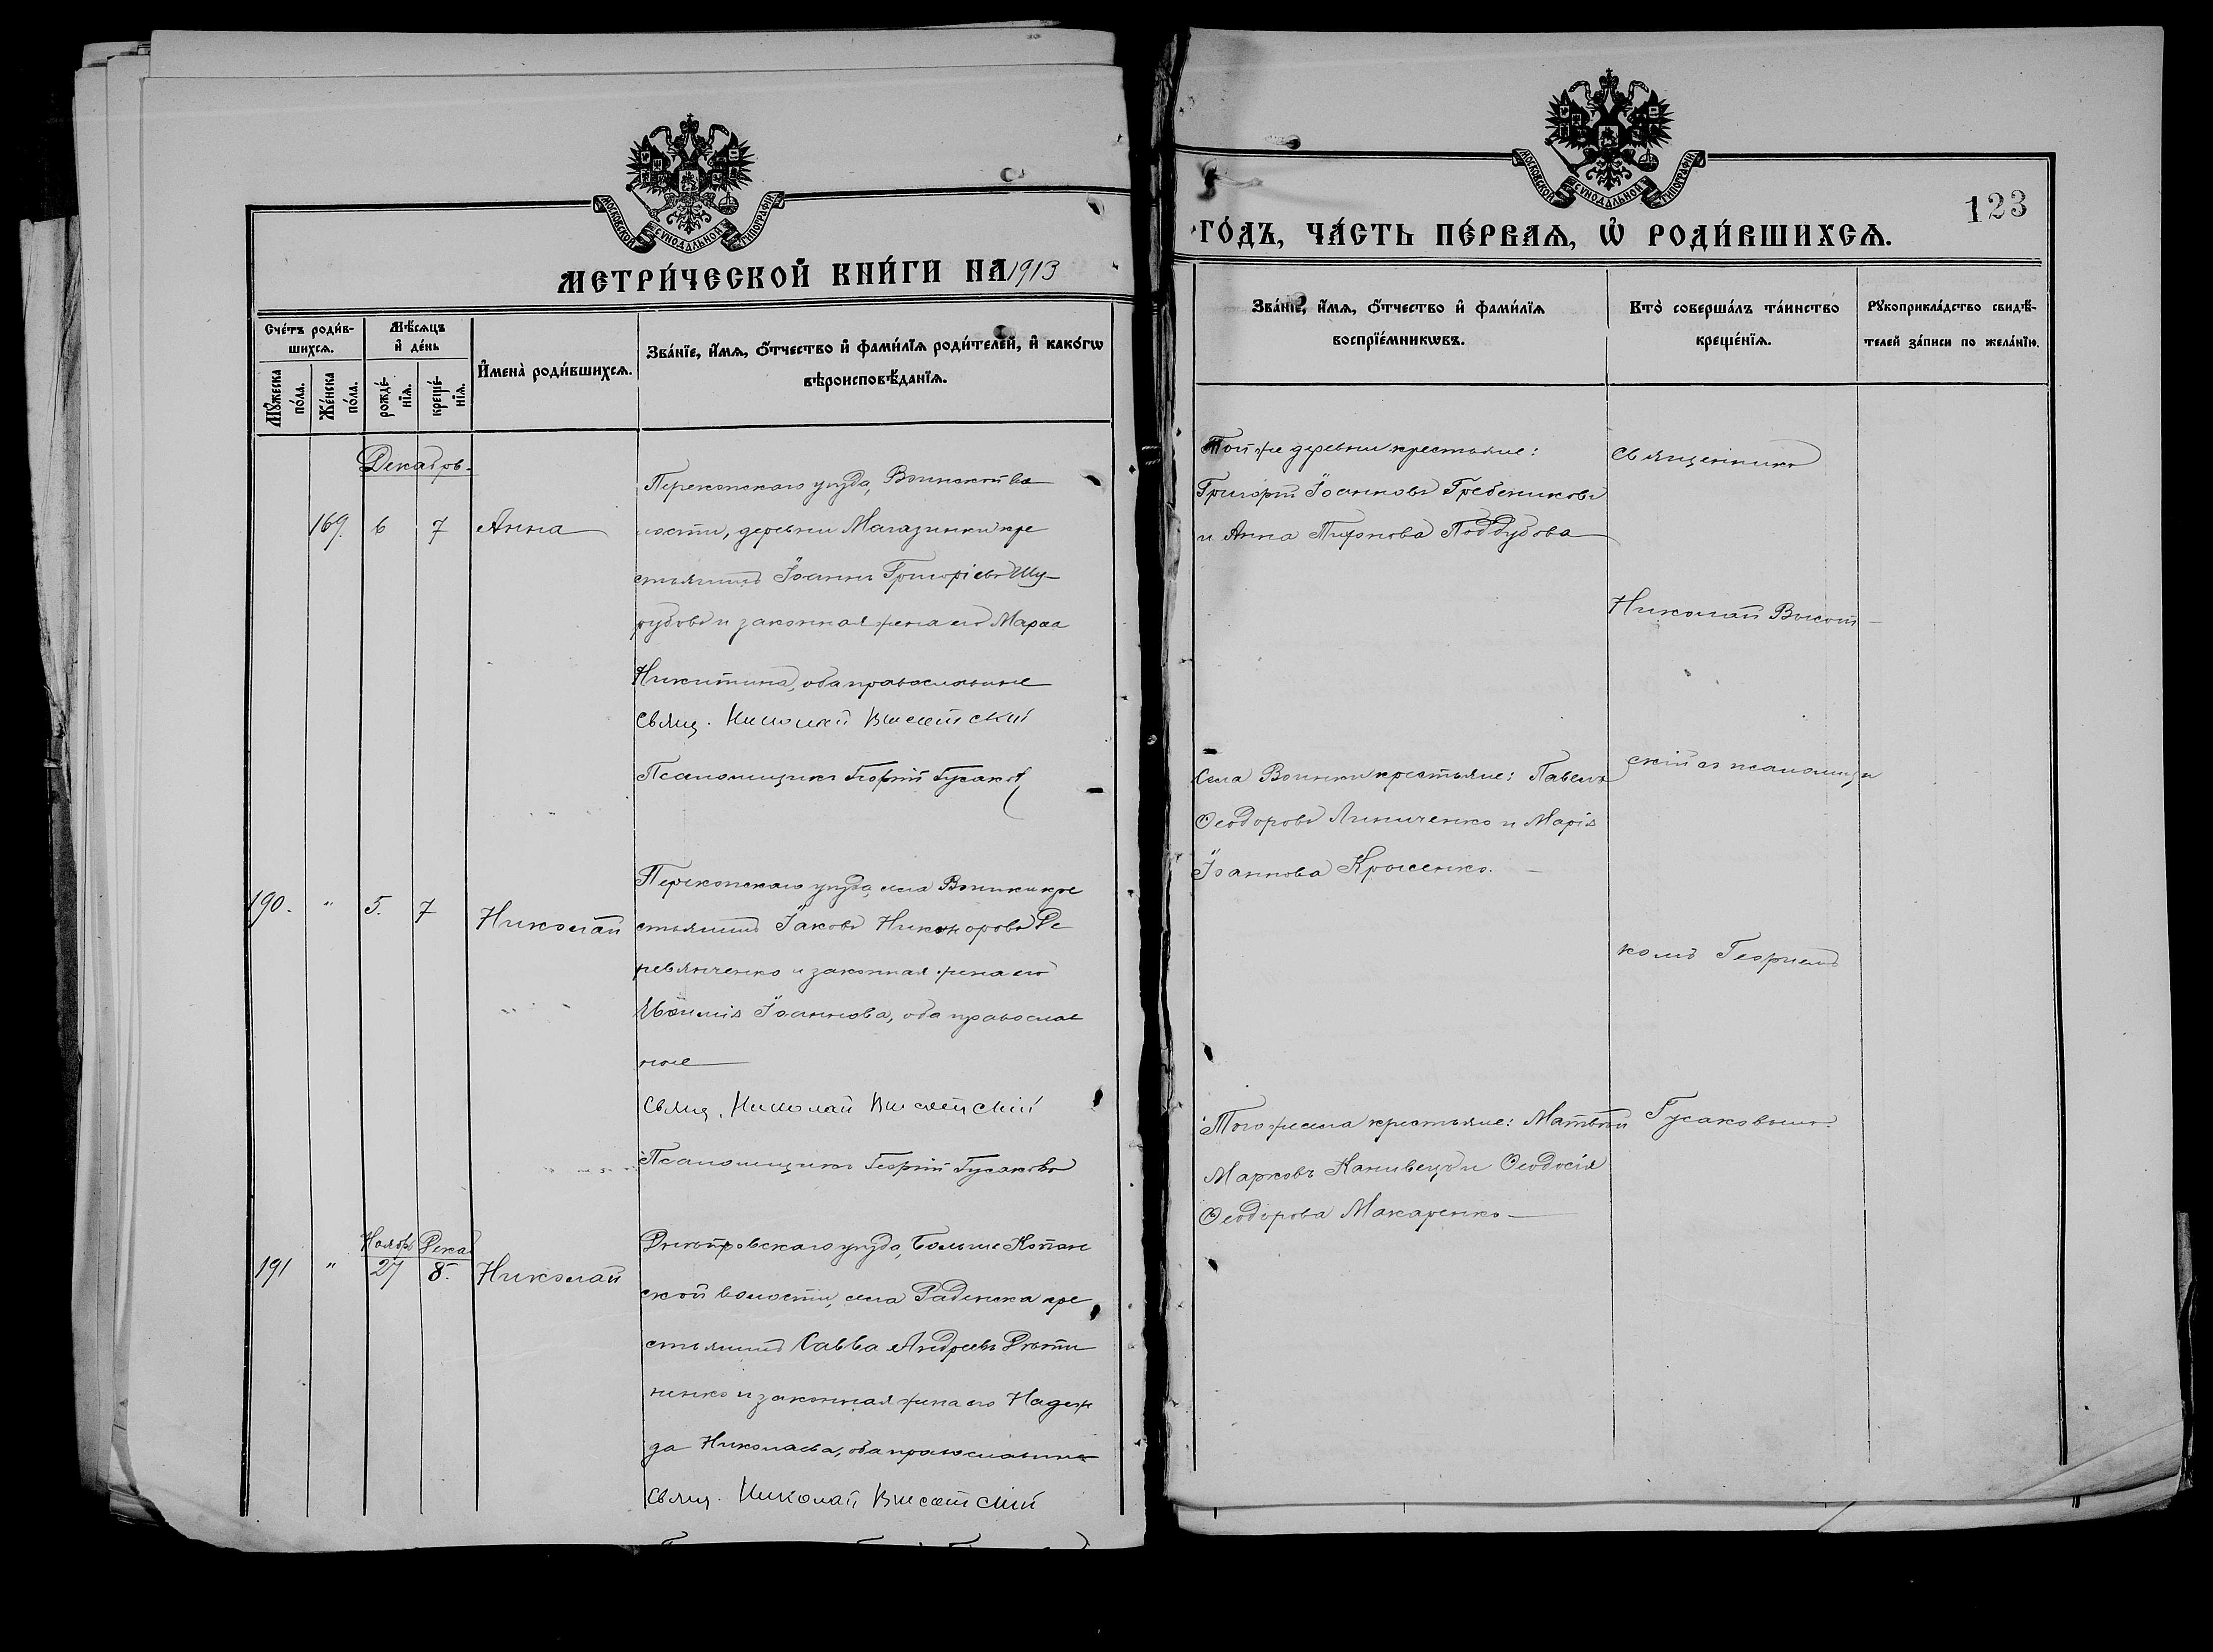 МОСКОВСКОЙ СѴНОДАЛЬНОЙ ТИПОГРАФІИ
МЕТРИ́ЧЕСКОЙ КНИ́ГИ НА 1913
Сче́тъ роди́в-
шихсѧ.
Мѣ́сѧцъ
и҆ де́нь
Мꙋ́жеска
по́ла.
Же́нска
по́ла.
рожде́-
нїѧ.
креще́-
нїѧ.
И҆мена̀ роди́вшихсѧ.
Зва́нїе, и҆́мѧ, ѻ҆́тчество и҆ фами́лїѧ роди́телей, и҆ како́гѡ
вѣроисповѣ́данїѧ.
Декабрь
Перекопскаго уѣзда, Воинской во
169. 6 7 Анна
лости, деревни Магазинки кре
стьянинъ Іоаннъ Григоріевъ Шу
рубовъ и законная жена его Марѳа
Никитина, оба православные
Свящ. Николай Высотскій
Псаломщикъ Георгій Гусаковъ
Перекопскаго уѣзда, села Воинки кре
190. " 5. 7 Николай
стьянинъ Іаковъ Никаноровъ Де
ревянченко и законная жена его
Іоаннова, оба православ
ные
Свящ. Николай Высотскій
Псаломщикъ Георгій Гусаковъ
Ноябр Дека
Днѣпровскаго уѣзда, Больше Копан
191 " 27 8. Николай
ской волости, села Раденска кре
стьянинъ Савва Андреевъ
ненко и законная жена его Надеж
да Николаева, оба православные
Свящ. Николай Высотскій
МОСКОВСКОЙ СѴНОДАЛЬНОЙ ТИПОГРАФІИ
123
ГО́ДЪ, ЧА́СТЬ ПЕ́РВАѦ, Ѡ҆ РОДИ́ВШИХСѦ.
Зва́нїе, и҆́мѧ, ѻ҆́тчество и҆ фами́лїѧ
воспрїе́мникѡвъ.
Кто̀ соверша́лъ та́инство
креще́нїѧ.
Рꙋкоприкла́дство свидѣ́-
телей за́писи по жела́нїю.
Той же деревни крестьяне:
Григорій Іоанновъ Гребениковъ
и Анна Поддубова
Священникъ
Николай Высот
скій съ псаломщи
комъ Георгіемъ
Гусаковымъ.
Села Воинки крестьяне: Павелъ
Ѳеодоровъ Линиченко и Марія
Іоаннова Крысенко.
Того же села крестьяне: Матвѣй
Марковъ Канивецъ и Ѳеодосія
Ѳеодорова Макаренко